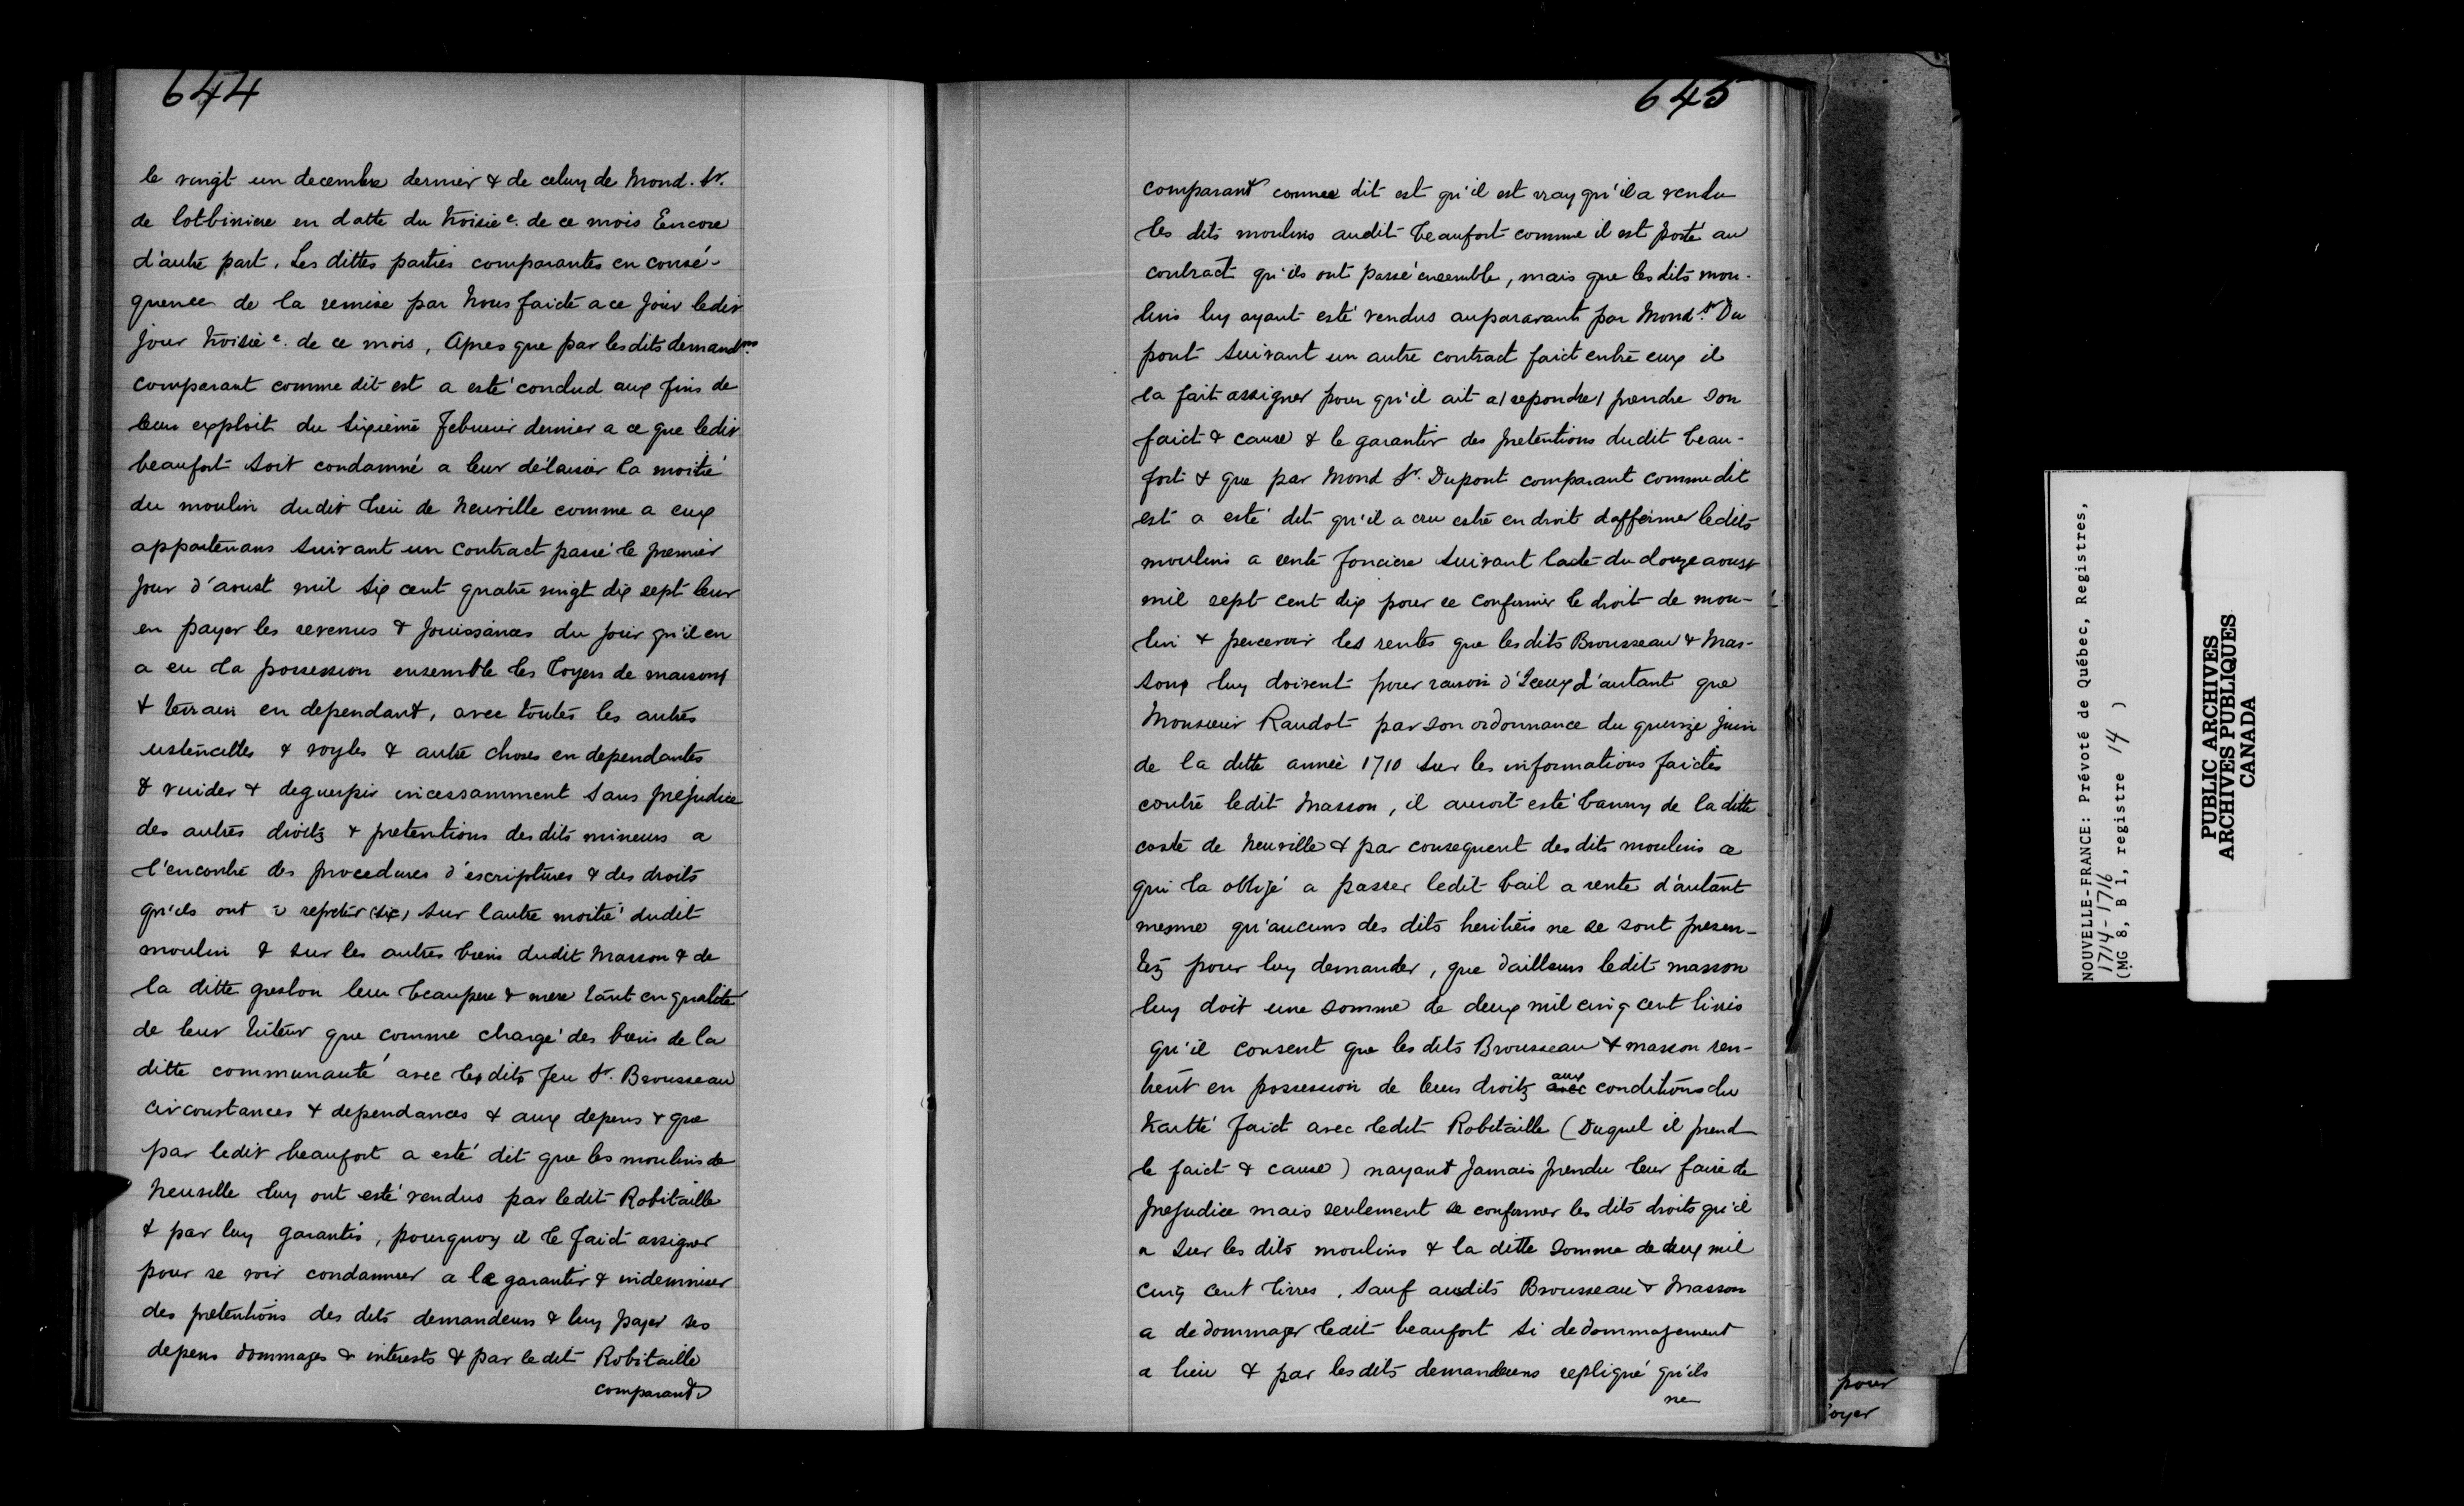 644
le vingt un decembre dernier & de celuy de Mond. Sr.
de lotbiniere en datte du troisie e. de ce mois Encore
d'autre part. Les dittes parties comparantes en consé-
quence de la remise par Nous faicte a ce jour ledit
jour troisie e. de ce mois, Apres que par lesdits demandrs
comparant comme dit est a esté conclud aux fins de
leur exploit du sixieme Februier dernier a ce que ledit
beaufort soit condamné a leur délaisser la moitié
du moulin dudit lieu de Neuville comme a eux
appartenans suivant un contract passé le premier
jour d'aoust mil six cent quatre vingt dix sept leur
en payer les revenus & jouissances du jour qu'il en
a eu la possession ensemble les loyers de maisons
& terrain en dependant, avec toutes les autres
ustencilles & voyles & autre choses en dependantes
& vuider & deguerpir incessamment sans prejudice
des autres droitz & pretentions desdits mineurs a
l'encontre des procedures d'escriptures & des droits
qu'ils ont a repeter (sic) sur lautre moitié dudit
moulin & sur les autres biens dudit Masson & de
la ditte greslon leur beaupere & mere tant en qualité
de leur tuteur que comme chargé des biens de la
ditte communauté avec les dits feu Sr. Brousseau
circonstances & dependances & aux depens & que
par ledit beaufort a esté dit que les moulins de
Neuville luy ont esté vendus par ledit Robitaille
& par luy garantis, pourquoy il le faict assigner
pour se voir condamner a le garantir & indemniser
des pretentions des dits demandeurs & luy payer ses
depens dommages & interests & par ledit Robitaille
comparant
645
comparant comme dit est qu'il est vray qu'il a vendu
les dits moulins audit beaufort comme il est porté au
contract qu'ils ont passé ensemble, mais que les dits mou-
lins luy ayant esté vendus auparavant par Mond. Sr Du
pont suivant un autre contract faict entre eux il
la fait assigner pour qu'il ait a (repondre) prendre son
faict & cause & le garantir des pretentions dudit beau-
fort & que par Mond Sr. Dupont comparant comme dit
est a esté dit qu'il a cru estre en droit daffermer ledits
moulins a rente fonciere suivant lacte du douze aoust
mil sept cent dix pour se confermer le droit de mou-
lin & percevoir les rentes que lesdits Brousseau & Mas-
sons luy doivent pour raison d'Iceux d'autant que
Monsieur Raudot par son ordonnance du quinze juin
de la ditte année 1710 sur les informations faictes
contre ledit Masson, il auroit esté banny de la ditte
coste de Neuville & par consequent desdits moulins ce
qui la obligé a passer ledit bail a rente d'autant
mesme qu'aucuns des dits heritiers ne se sont presen-
tez pour luy demander, que dailleurs ledit masson
luy doit une somme de deux mil cinq cent livres
qu'il consent que les dits Brousseau & masson ren-
trent en possession de leurs droitz avec aux conditions du
traitté faict avec ledit Robitaille (Duquel il prend
le faict & cause) nayant jamais prendu leur faire de
prejudice mais seulement se confermer les dits droits qu'il
a sur les dits moulins & la ditte somme de deux mil
cinq cent livres, sauf ausdits Brousseau & Masson
a dedommager ledit beaufort si dedommagement
a lieu & par lesdits demandeurs repliqué qu'ils
ne
pour
oyer
NOUVELLE-FRANCE: Prévoté de Québec, Registres,
1714-1716
(MG 8, B 1, registre 14 )
PUBLIC ARCHIVES
ARCHIVES PUBLIQUES
CANADA